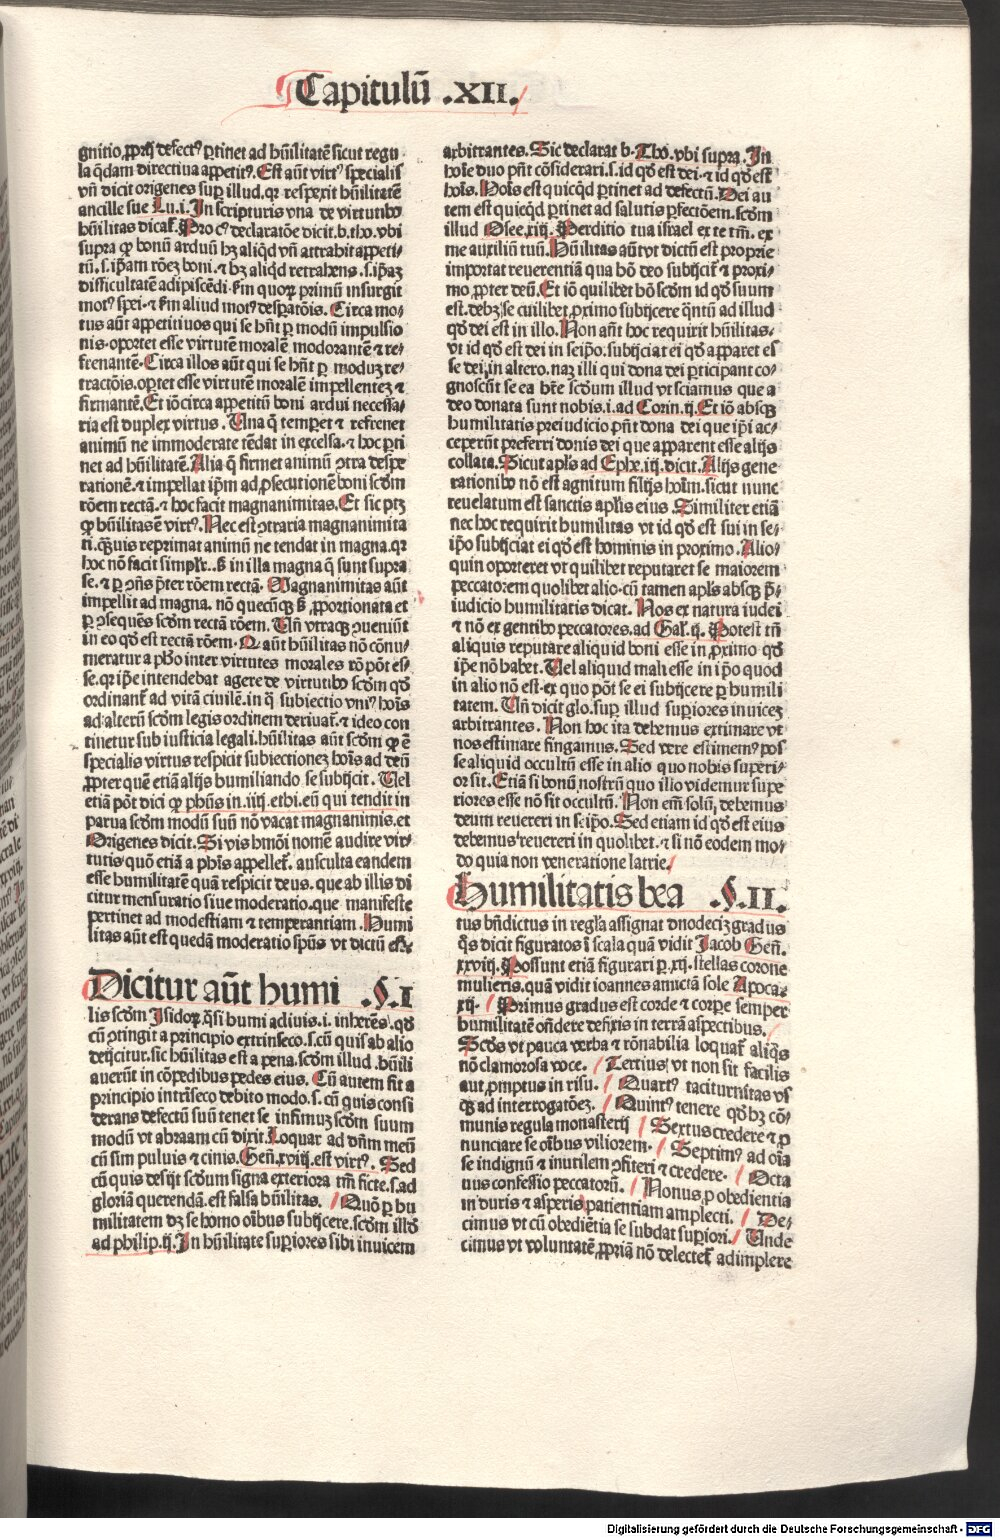 Capitulū .XII.
gnitio ꝓprij defectꝰ ꝑtinet ad hūilitatē sicut regu-
la q̄dam directiua appetitꝰ. Est aūt virtꝰ specialis
vn̄ dicit origenes suꝑ illud. qꝛ respexit hūilitatē
ancille sue Lu.i. In scripturis vna de virtutibꝰ
hūilitas dicat̄. Pro cꝰ declaratōe dicit.b.tho.vbi
supra ꝙ bonū arduū hꝫ aliqd̄ vn̄ attrahit appeti-
tū.s.ip̄am rōeꝫ boni.⁊ hꝫ aliqd̄ retrahens.s.ip̄aꝫ
difficultatē adipiscēdi. ẜm quoꝝ primū insurgit
motꝰ spei.⁊ ẜm aliud motꝰ desperatōis. Circa mo-
tus aūt appetitiuos qui se hn̄t ꝑ modū impulsio
nis.oportet esse virtutē moralē modorantē ⁊ re-
frenantē. Circa illos aūt qui se hn̄t ꝑ moduꝫ re-
tractōis.oꝑtet esse virtutē moralē impellenteꝫ ⁊
firmantē. Et iō circa appetitū boni ardui necessa-
ria est duplex virtus. Una q̄ temꝑet ⁊ refrenet
animū ne immoderate tēdat in excelsa.⁊ hoc ꝑti
net ad hūilitatē. Alia q̄ firmet animū ꝯtra despe
rationē.⁊ impellat ip̄m ad ꝓsecutionē boni scd̄m
rōem rectā.⁊ hoc facit magnanimitas. Et sic ptꝫ
ꝙ hūilitas ē virtꝰ. Nec est ꝯtraria magnanimita
ti.q̄uis reprimat animū ne tendat in magna.qꝛ
hoc nō facit simpl̄r..ẜ in illa magna q̄ sunt supra
se.⁊ ꝑ ꝯn̄s p̄ter rōem rectā. Magnanimitas aūt
impellit ad magna. nō quecūqꝫ ẜ ꝓportionata et
ꝑ ꝯsequēs scd̄m rectā rōem. Un̄ vtraqꝫ ꝯueniūt
in eo qd̄ est rectā rōem. Q aūt hūilitas nō cōnu-
meratur a pho inter virtutes morales rō pōt es-
se.qꝛ ip̄e intendebat agere de virtutibꝰ scd̄m qd̄
ordinant̄ ad vitā ciuilē.in q̄ subiectio vniꝰ hoīs
ad alterū scd̄m legis ordinem deriuat̄.⁊ ideo con
tinetur sub iusticia legali.hūilitas aūt scd̄m ꝙ ē
specialis virtus respicit subiectioneꝫ hoīs ad deū
ꝓpter quē etiā alijs humiliando se subijcit. Uel
etiā pōt dici ꝙ ph̄us in.iiij.ethi.eū qui tendit in
parua scd̄m modū suū nō vacat magnanimis.et
Origenes dicit. Si vis hmōi nomē audire vir-
tutis quō etiā a phīs appellet̄. ausculta eandem
esse humilitatē quā respicit deus. que ab illis dī
citur mensuratio siue moderatio.que manifeste
pertinet ad modestiam ⁊ temperantiam. Humi
litas aūt est quedā moderatio spūs vt dictū est.
Dicitur aūt humi .§.I
lis scd̄m Isidoꝝ.q̄si humi acliuis.i. inherēs.qd̄
cū ꝯtingit a principio extrinseco.s.cū quis ab alio
deijcitur.sic hūilitas est a pena.scd̄m illud.hūili
auerūt in cōpedibus pedes eius. Cū autem fit a
principio intriseco debito modo.s.cū quis consi
derans defectū suū tenet se infimuꝫ scd̄m suum
modū vt abraam cū dixit. Loquar ad dn̄m meū
cū sim puluis ⁊ cinis. Gen̄.xviij.est virtꝰ. Sed
cū quis desijt scd̄um signa exteriora tm̄ ficte.s.ad
gloriā querendā.est falsa hūilitas. Quō ꝑ hu
militatem dꝫ se homo oībus subijcere.scd̄m illd̄
ad philip.ij. In hūilitate suꝑiores sibi inuicem
arbitrantes. Sic declarat b.Tho.vbi supra. In
hoīe duo pn̄t cōsiderari.s.id qd̄ est dei.⁊ id qd̄ est
hoīs. Hoīs est quicqd̄ ꝑtinet ad defectū. Dei au
tem est quicqd̄ ꝑtinet ad salutis ꝑfectōem.scd̄m
illud Osee.xiij. Perditio tua israel ex te tm̄. ex
me auxiliū tuū. Hūilitas aūt vt dictū est proprie
importat reuerentiā qua hō deo subijcit̄ ⁊ proxi-
mo ꝓpter deū. Et iō quilibet hō scd̄m id qd̄ suum
est.debꝫ se cuilibet ꝓximo subijcere q̄ntū ad illud
qd̄ dei est in illo. Non aūt hoc requirit hūilitas.
vt id qd̄ est dei in seip̄o.subijciat ei qd̄ apparet es
se dei.in altero.naꝫ illi qui dona dei ꝑticipant co-
gnoscūt se ea hr̄e scd̄um illud vt sciamus que a
deo donata sunt nobis.i.ad Corin.ij. Et iō absqꝫ
humilitatis preiudicio pn̄t dona dei que ip̄i ac-
ceperūt preferri donis dei que apparent esse alijs
collata. Sicut apl̄s ad Ephe.iij.dicit. Alijs gene
rationibꝰ nō est agnitum filijs hoīm.sicut nunc
reuelatum est sanctis apl̄is eius. Similiter etiā
nec hoc requirit humilitas vt id qd̄ est sui in se-
ip̄o subijciat ei qd̄ est hominis in proximo. Alio-
quin oporteret vt quilibet reputaret se maiorem
peccatorem quolibet alio.cū tamen apl̄s absqꝫ p̄-
iudicio humilitatis dicat. Nos ex natura iudei
⁊ nō ex gentibꝰ peccatores.ad Gal̄.ij. Potest tn̄
aliquis reputare aliquid boni esse in ꝓximo qd̄
ip̄e nō habet. Uel aliquid mali esse in ip̄o quod
in alio nō est.ex quo pōt se ei subijcere ꝑ humili
tatem. Un̄ dicit glo.suꝑ illud suꝑiores inuiceꝫ
arbitrantes. Non hoc ita debemus extimare vt
nos estimare fingamus. Sed vere estimemꝰ pos
se aliquid occultū esse in alio quo nobis superi-
or sit. Etiā si bonū nostrū quo illo videmur supe
riores esse nō sit occultū. Non em̄ solū. debemus
deum reuereri in seip̄o. Sed etiam id qd̄ est eius
debemus reuereri in quolibet.⁊ si nō eodem mo-
do quia non veneratione latrie.
Humilitatis bea .§.II.
tus bn̄dictus in regl̄a assignat duodeciꝫ gradus
q̄s dicit figuratos ī scala quā vidit Jacob Gen̄.
xxviij. Possunt etiā figurari ꝑ.xij.stellas corone
mulieris.quā vidit ioannes amictā sole Apoca.
xij. Primus gradus est corde ⁊ corꝑe semper
humilitatē on̄dere defixis in terrā aspectibus.
Scd̄s vt pauca verba ⁊ rōnabilia loquat̄ aliq̄s
nō clamorosa voce. Tertius vt non sit facilis
aut ꝓmptus in risu. Quartꝰ taciturnitas vs
qꝫ ad interrogatōeꝫ. Quintꝰ tenere qd̄ hꝫ cō-
munis regula monasterij Sextus credere ⁊ ꝓ
nunciare se oībus viliorem. Septimꝰ ad oīa
se indignū ⁊ inutilem ꝯfiteri ⁊ credere. Octa
uus confessio peccatorū. Nonus ꝓ obedientia
in duris ⁊ asperis patientiam amplecti. De-
cimus vt cū obediētia se subdat suꝑiori. Unde
cimus vt voluntatē ꝓpriā nō delectet̄ adimplere
Digitalisierung gefördert durch die Deutsche Forschungsgemeinschaft - DFG